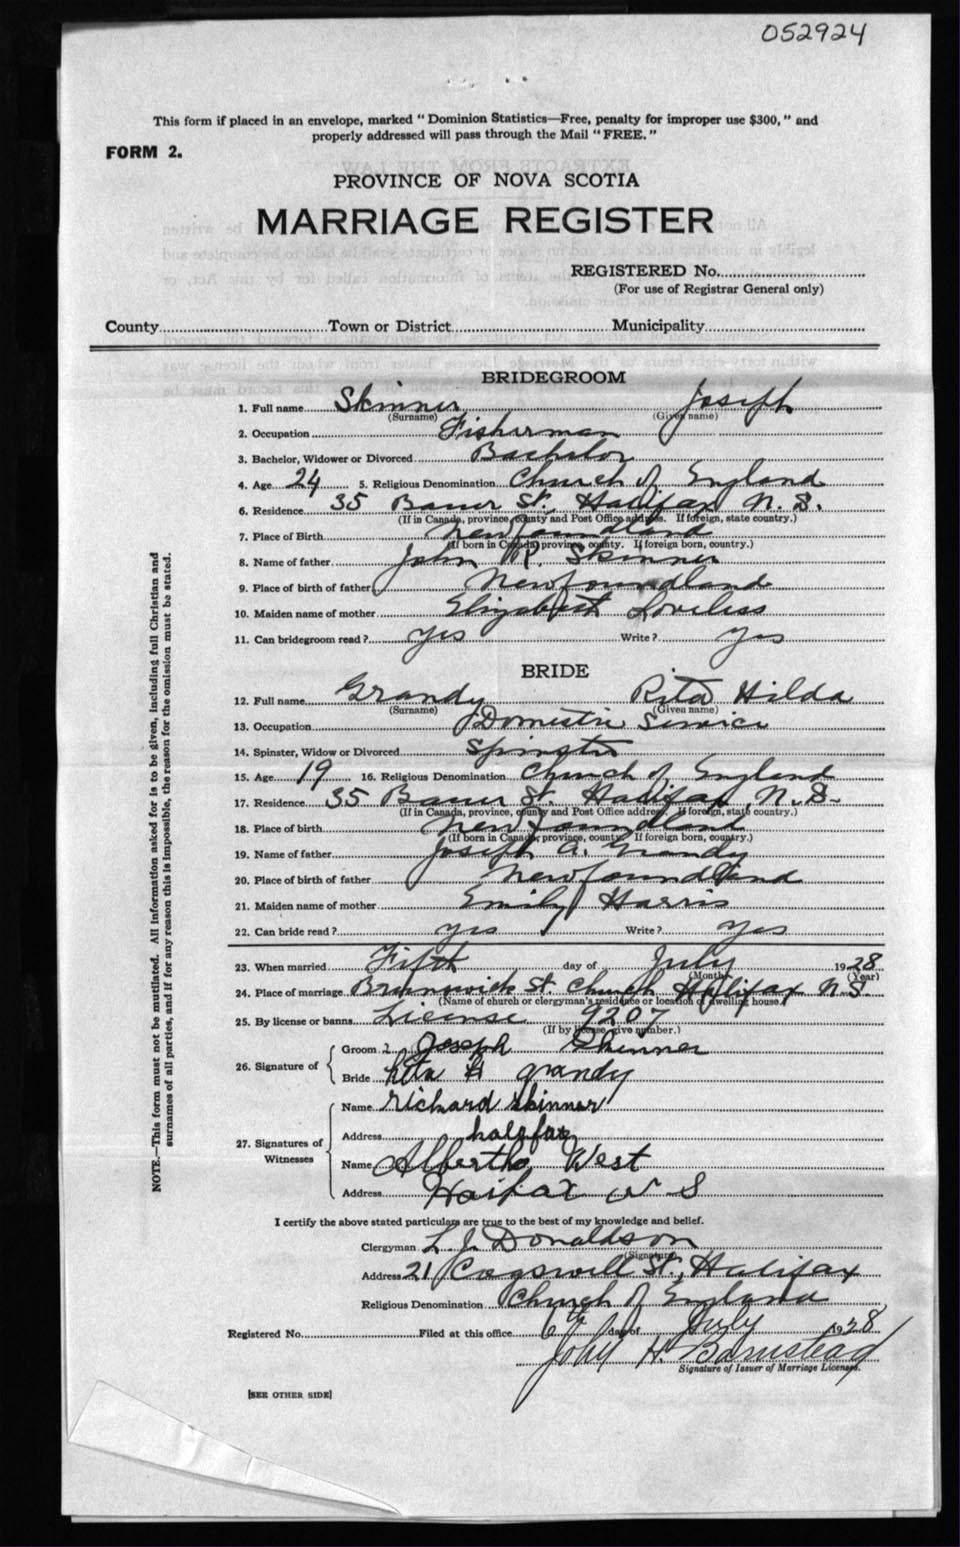 052924
This form if placed in an envelope, marked "Dominion Statistics—Free, penalty for improper use $300," and
properly addressed will pass through the Mail "FREE."
FORM 2.
PROVINCE OF NOVA SCOTIA
MARRIAGE REGISTER
REGISTERED No.
(For use of Registrar General only)
County Town or District Municipality
BRIDEGROOM
1. Full name Skinner Joseph
(Surname) (Given name)
2. Occupation Fisherman
3. Bachelor, Widower or Divorced Bachelor
4. Age 24 5. Religious Denomination Church of England
6. Residence 35 Bauer St. Halifax N. S.
(If in Canada, province, county and Post Office address. If foreign, state country.)
7. Place of Birth Newfoundland
(If born in Canada, province, county. If foreign born, country.)
8. Name of father John R. Skinner
9. Place of birth of father Newfoundland
10. Maiden name of mother Elizabeth Loveless
11. Can bridegroom read? yes Write? yes
BRIDE
12. Full name Grandy Rita Hilda
(Surname) (Given name)
13. Occupation Domestic Service
14. Spinster, Widow or Divorced Spinster
15. Age 19 16. Religious Denomination Church of England
17. Residence 35 Bauer St. Halifax N. S.
(If in Canada, province, county and Post Office address. If foreign, state country.)
18. Place of birth Newfoundland
(If born in Canada, province, county. If foreign born, country.)
19. Name of father Joseph A. Grandy
20. Place of birth of father Newfoundland
21. Maiden name of mother Emily Harris
22. Can bride read? yes Write? yes
23. When married Fifth day of July 1928
(Month) (Year)
24. Place of marriage Brunswick St Church Halifax N S.
(Name of church or clergyman's residence or location of dwelling house.)
25. By license or banns License 9207
(If by license, give number.)
26. Signature of Groom Joseph Skinner
Bride Rita H grandy
27. Signatures of Witnesses
Name richard skinner
Address halifax
Name Albertha West
Address Haifax N S
I certify the above stated particulars are true to the best of my knowledge and belief.
Clergyman L. J. Donaldson
(Signature)
Address 21 Cogswill St., Halifax
Religious Denomination Church of England
Registered No. Filed at this office 6th day of July 1928
John H. Barnstead
Signature of Issuer of Marriage Licenses.
[SEE OTHER SIDE]
NOTE.—This form must not be mutilated. All information asked for is to be given, including full Christian and
surnames of all parties, and if for any reason this is impossible, the reason for the omission must be stated.